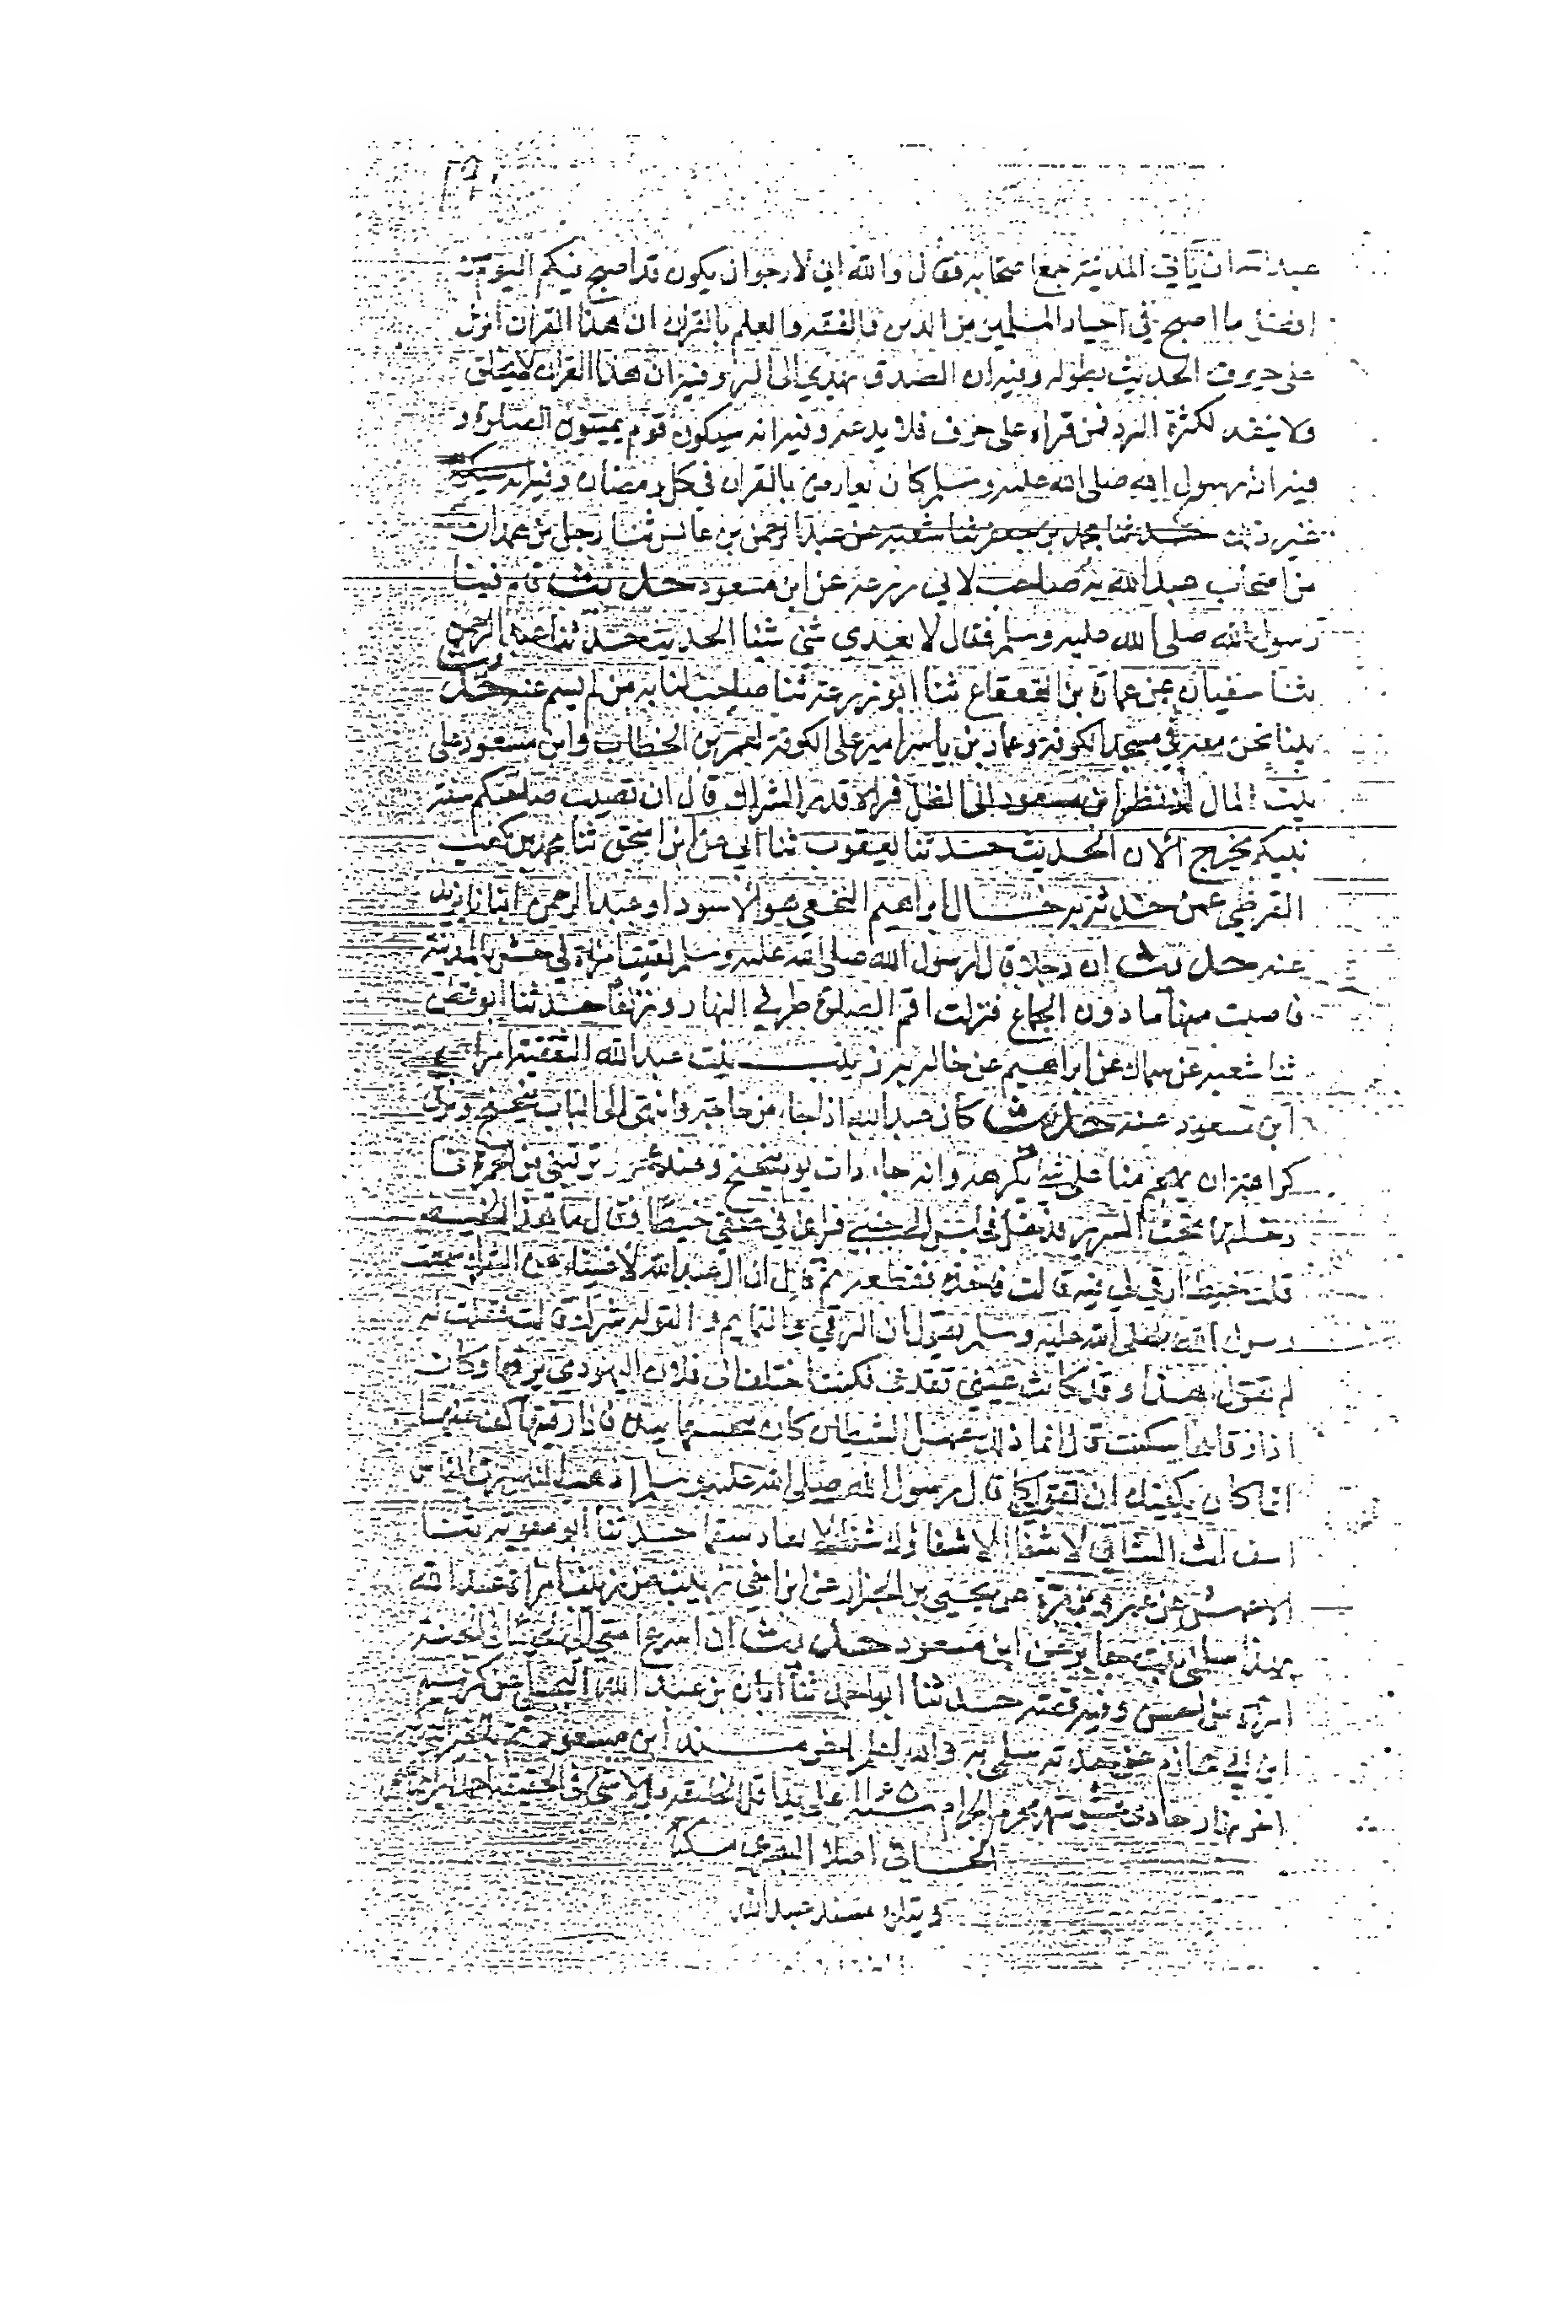 عبد الله ان يأتي المدينة جمع اصحابه فقال والله اني لارجو ان يكون قد اصبح فيكم اليوم من
افضل ما اصبح في اجناد المسلمين من الدين والفقه والعلم بالقران ان هذا القران انزل
على حروف الحديث بطوله وفيه ان الصدق يهدي الى البر وفيه ان هذا القران لا يختلق
ولا يستشن لكثرة الرد فمن قراه على حرف فلا يدعه وفيه انه سيكون قوم يميتون الصلوة و
فيه ان رسول الله صلى الله عليه وسلم كان يعارض بالقران في كل رمضان وفيه
غير ذلك حدثنا محمد بن جعفر ثنا شعبة عن عبد الرحمن بن عابس ثنا رجل من همدان
من اصحاب عبد الله به صاحب لابي زرعة عن ابن مسعود حديث قام فينا
رسول الله صلى الله عليه وسلم فقال لا يعدي شئ شيئا الحديث حدثنا عبد الرحمن
ثنا سفيان عن عمارة بن القعقاع ثنا ابو زرعة ثنا صاحب لنا به من لم يسم عنه حديث
بينا نحن معه في مسجد الكوفة وعمار بن ياسر امير على الكوفة لعمر بن الخطاب وابن مسعود على
بيت المال اذ نظر ابن مسعود الى الظل فراه قدر الشراك قال ان تصيب صاحبكم سنة
نبيكم يخرج الان الحديث حدثنا يعقوب ثنا ابي عن ابن اسحق ثنا محمد بن كعب
القرظي عمن حدثه به خال ابراهيم النخعي هو الاسود او عبد الرحمن ابنا يزيد
عنه حديث ان رجلا قال لرسول الله صلى الله عليه وسلم لقيت امراة في حش بالمدينة
فاصبت منها ما دون الجماع فنزلت اقم الصلوة طرفي النهار وزلفا حدثنا ابو قطن
ثنا شعبة عن سماك عن ابراهيم عن خاله به زينب بنت عبد الله الثقفية امراة
ابن مسعود عنه حديث كان عبد الله اذا جاء من حاجة فانتهى الى الباب تنحنح وبزق
كراهية ان يهجم منا على شئ يكرهه وانه جاء ذات يوم فتنحنح وعندي عجوز ترقيني من الحمرة
فادخلتها تحت السرير فدخل فجلس الى جنبي فراى في عنقي خيطا فقال ما هذا الخيط
قلت خيط ارقي لي فيه قالت فاخذه فقطعه ثم قال ان ال عبد الله لاغنياء عن الشرك سمعت
رسول الله صلى الله عليه وسلم يقول ان الرقى والتمايم والتولة شرك قالت فقلت له
لم تقول هذا وقد كانت عيني تقذف فكنت اختلف الى فلان اليهودي يرقيها وكان
اذا رقاها سكنت قال انما ذلك عمل الشيطان كان ينخسها بيده فاذا رقيتها كف عنها
انما كان يكفيك ان تقولي كما قال رسول الله صلى الله عليه وسلم اذهب الباس رب الناس
اشف انت الشافي لا شفاء الا شفاؤك شفاء لا يغادر سقما حدثنا ابو معوية ثنا
الاعمش عن عمرو بن مرة عن يحيى بن الجزار عن ابن اخي زينب عن زينب امراة عبد الله
بهذا سلمى بنت جابر عن ابن مسعود حديث ان اسرع امتي بي لحوقا في الجنة
امراة من احمس وفيه قصة حدثنا ابو احمد ثنا ابان بن عبد الله البجلي عن كريم
ابن ابي حازم عن جدته سلمى به والله اعلم اخر مسند ابن مسعود
اخر نهار حادي شهر محرم الحرام سنة على يد
ويتلوه مسند عبد الله